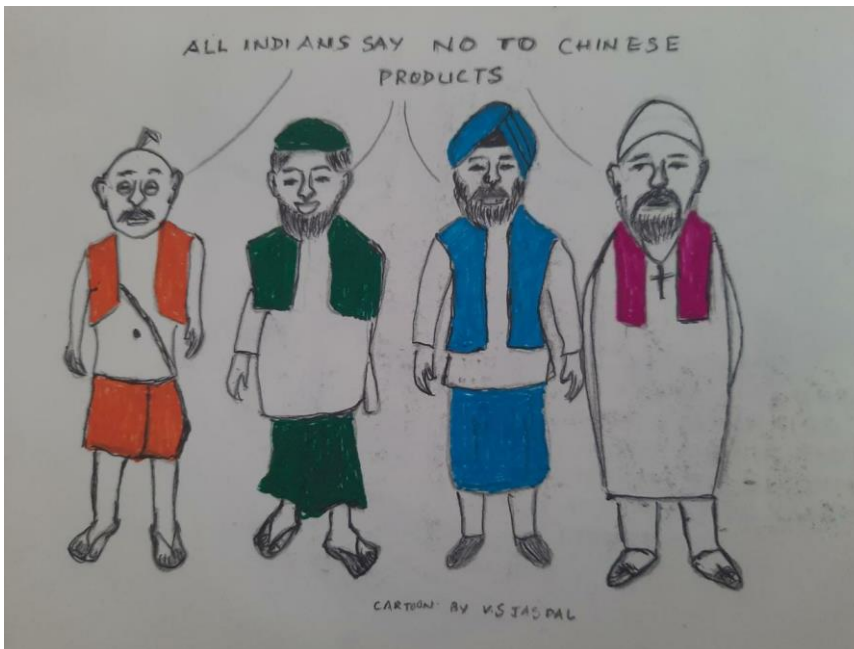 ALL INDIANS SAY NO TO CHINESE
PRODUCTS
CARTOON BY V.S JASPAL